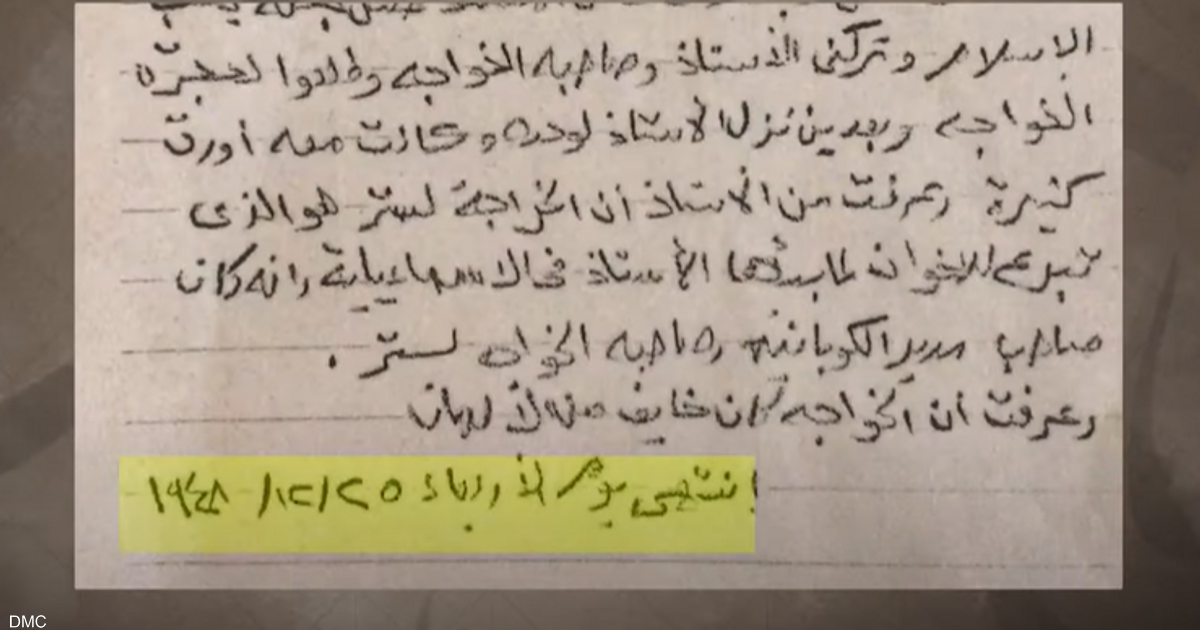 الاسلام وتركنى الأستاذ وصاحبه الخواجه وطلعوا لحجرة
الخواجه وبعدين نزل الاستاذ لوحده وكانت معه أورق
كثيرة وعرفت من الأستاذ أن الخواجة لستر هو الذى
تبرع للاخوان لما بدأها الأستاذ فى الاسماعيلية وانه كان
صاحب مدير الكوبانيه وصاحبه الخواجه لستر .
وعرفت أن الخواجه كان خايف من الألمان
انتهى يوم الأربعاء ٢٥/١٢/١٩٤٨
DMC